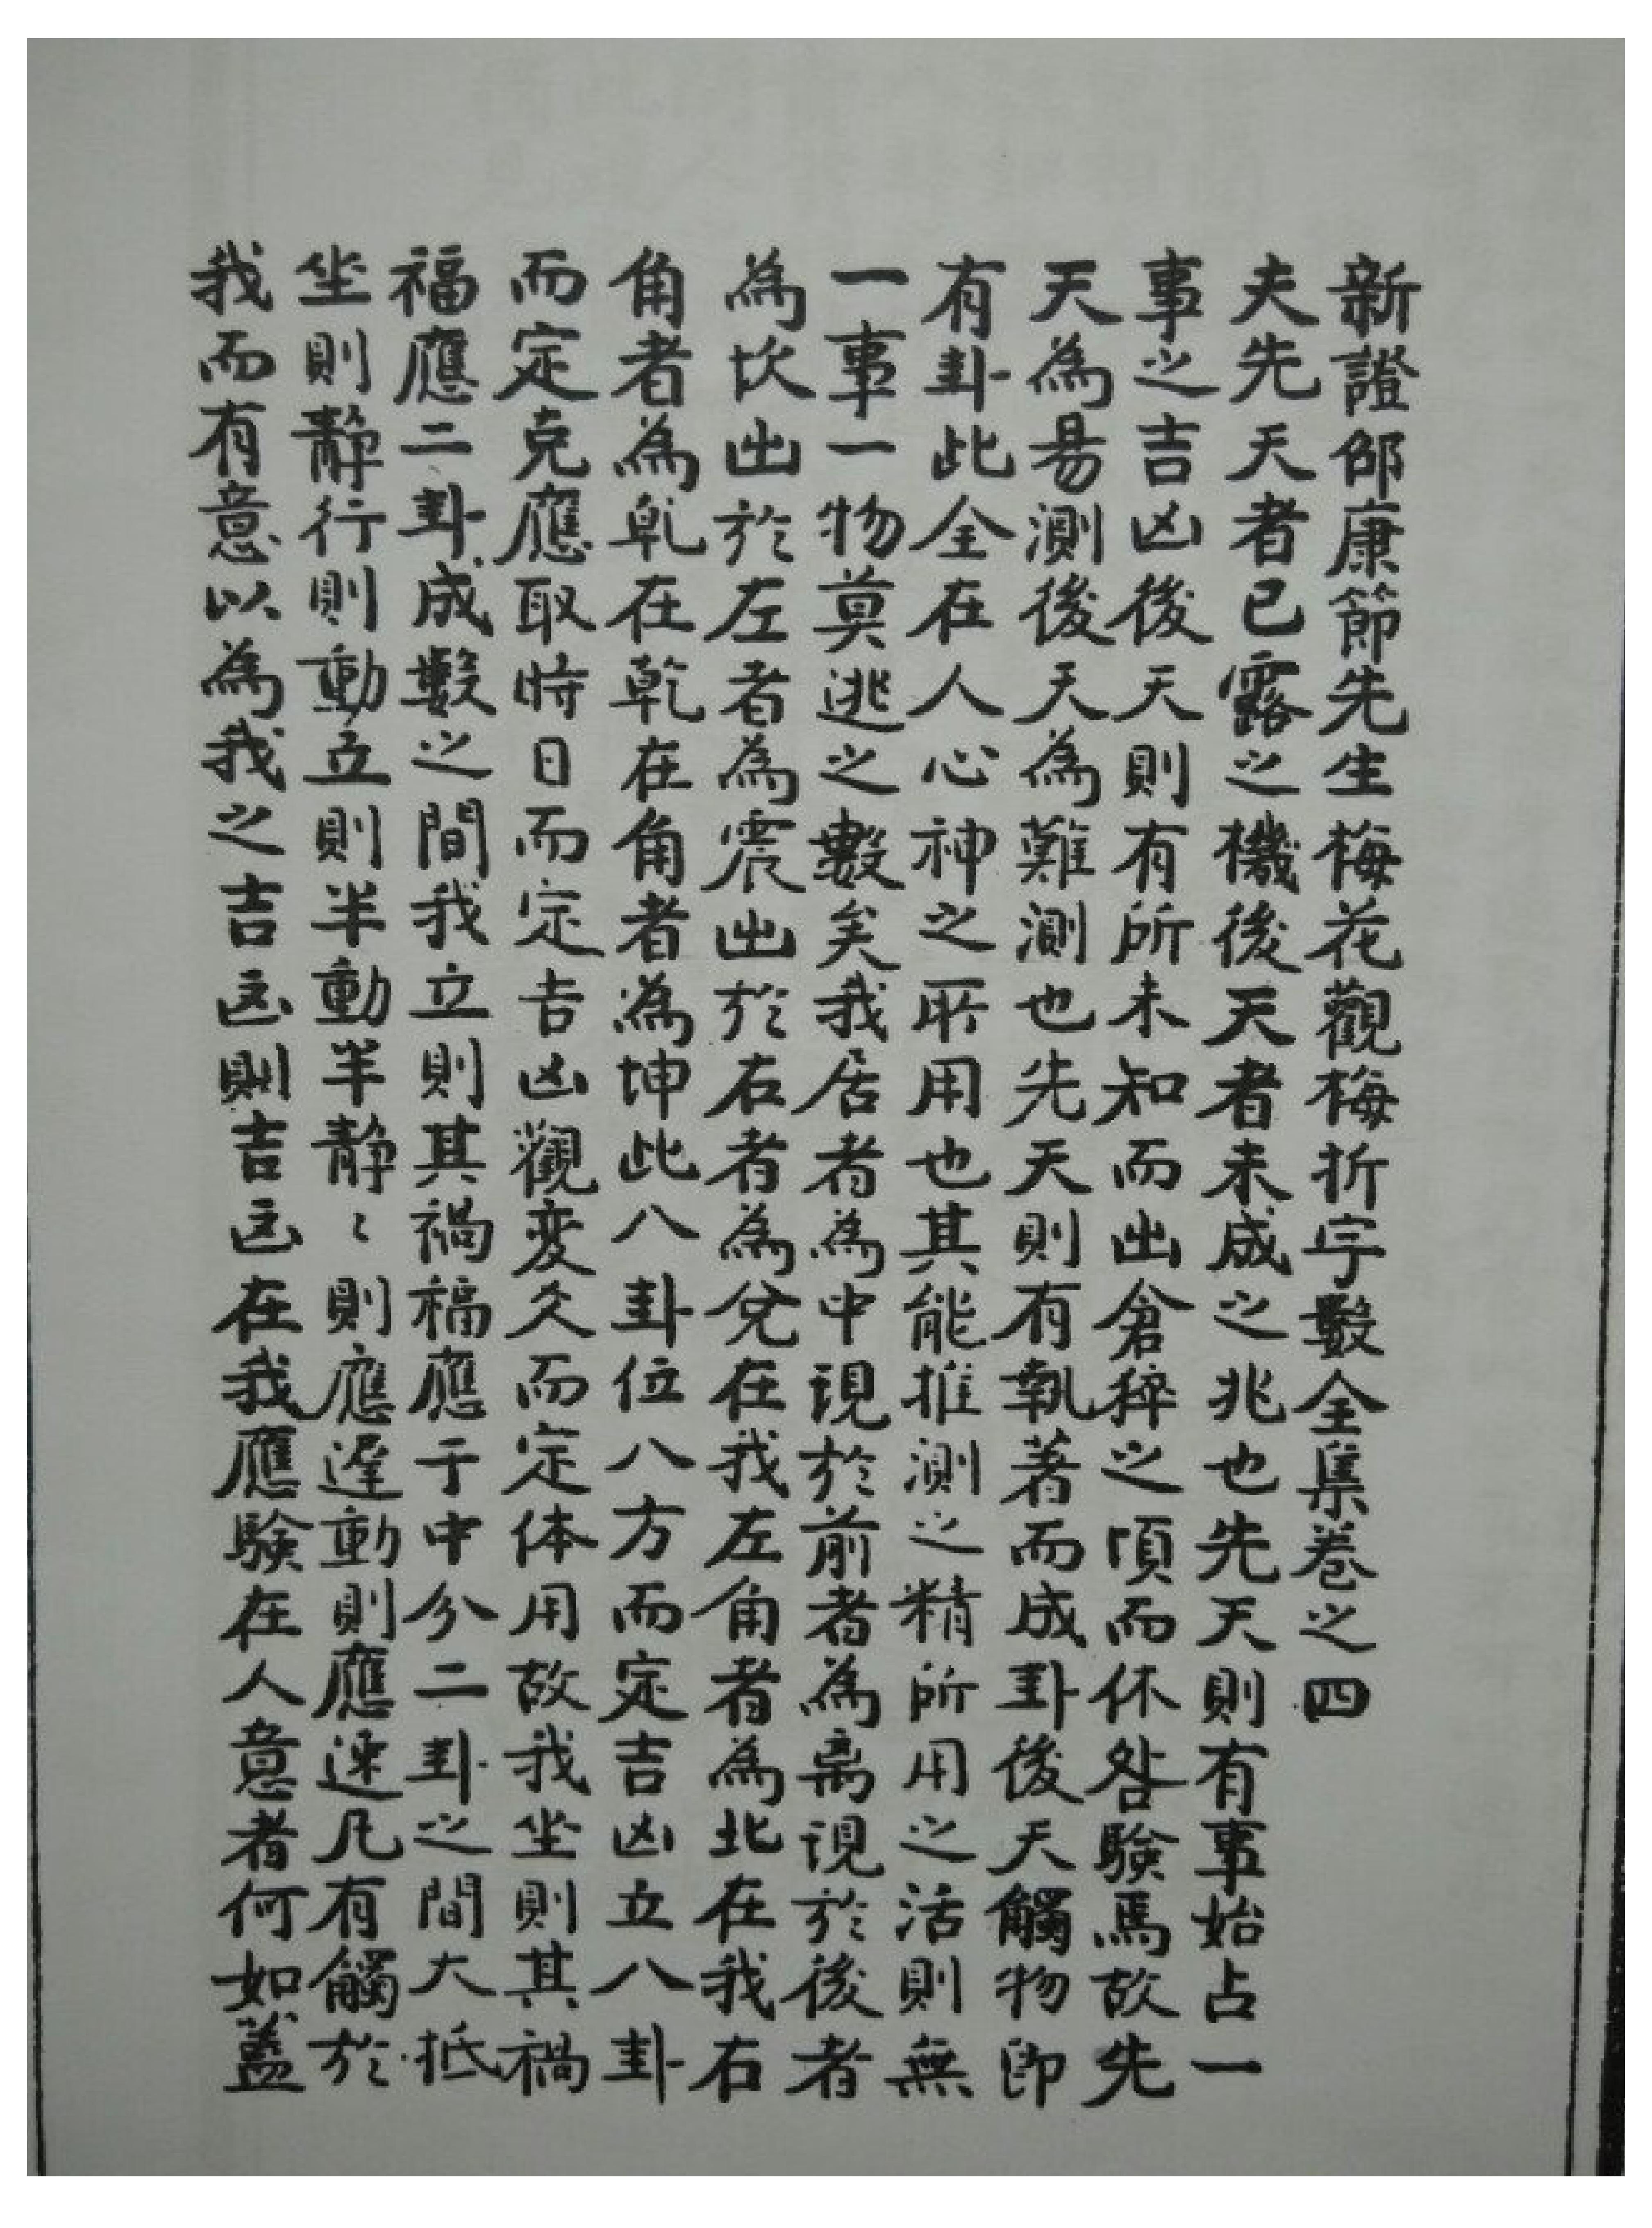 新證邵康節先生梅花觀梅折字數全集卷之四
夫先天者已露之機後天者未成之兆也先天則有事始占一
事之吉凶後天則有所未知而出倉猝之頃而休咎驗焉故先
天為易測後天為難測也先天則有執著而成卦後天觸物即
有卦此全在人心神之所用也其能推測之精所用之活則無
一事一物莫逃之數矣我居者為中現於前者為离現於後者
為坎出於左者為震出於右者為兌在我左角者為北在我右
角者為乹在乾在角者為坤此八卦位八方而定吉凶立八卦
而定克應取時日而定吉凶觀变爻而定体用故我坐則其禍
福應二卦成數之間我立則其禍福應于中分二卦之間大抵
坐則靜行則動立則半動半靜〻則應遲動則應速凡有觸於
我而有意以為我之吉凶則吉凶在我應驗在人意者何如蓋